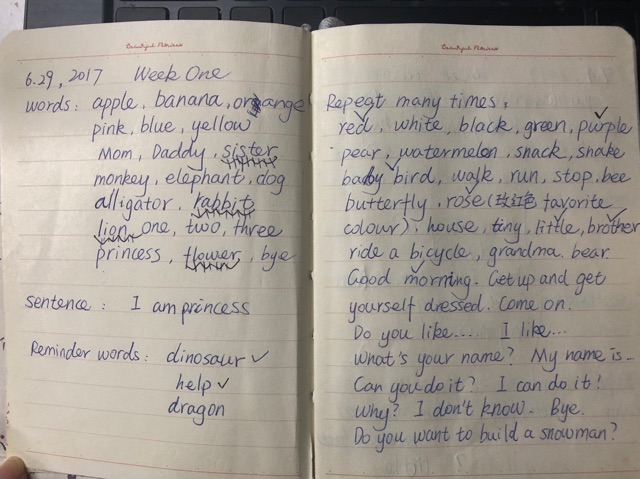 Beautiful Flowers
6.29, 2017 Week One
words: apple, banana, orange
pink, blue, yellow
Mom, Daddy, sister
monkey, elephant, dog
alligator, rabbit
lion, one, two, three
princess, flower, bye
sentence: I am princess
Reminder words: dinosaur ✓
help ✓
dragon
Beautiful Flowers
Repeat many times:
red, white, black, green, purple
pear, watermelon, snack, snake
baby bird, walk, run, stop, bee
butterfly, rose(玫红色 favorite
colour), house, tiny, little, brother
ride a bicycle, grandma. bear.
Good morning. Get up and get
yourself dressed. Come on.
Do you like..... I like...
What's your name? My name is–
Can you do it? I can do it!
Why? I don't know. Bye.
Do you want to build a snowman?